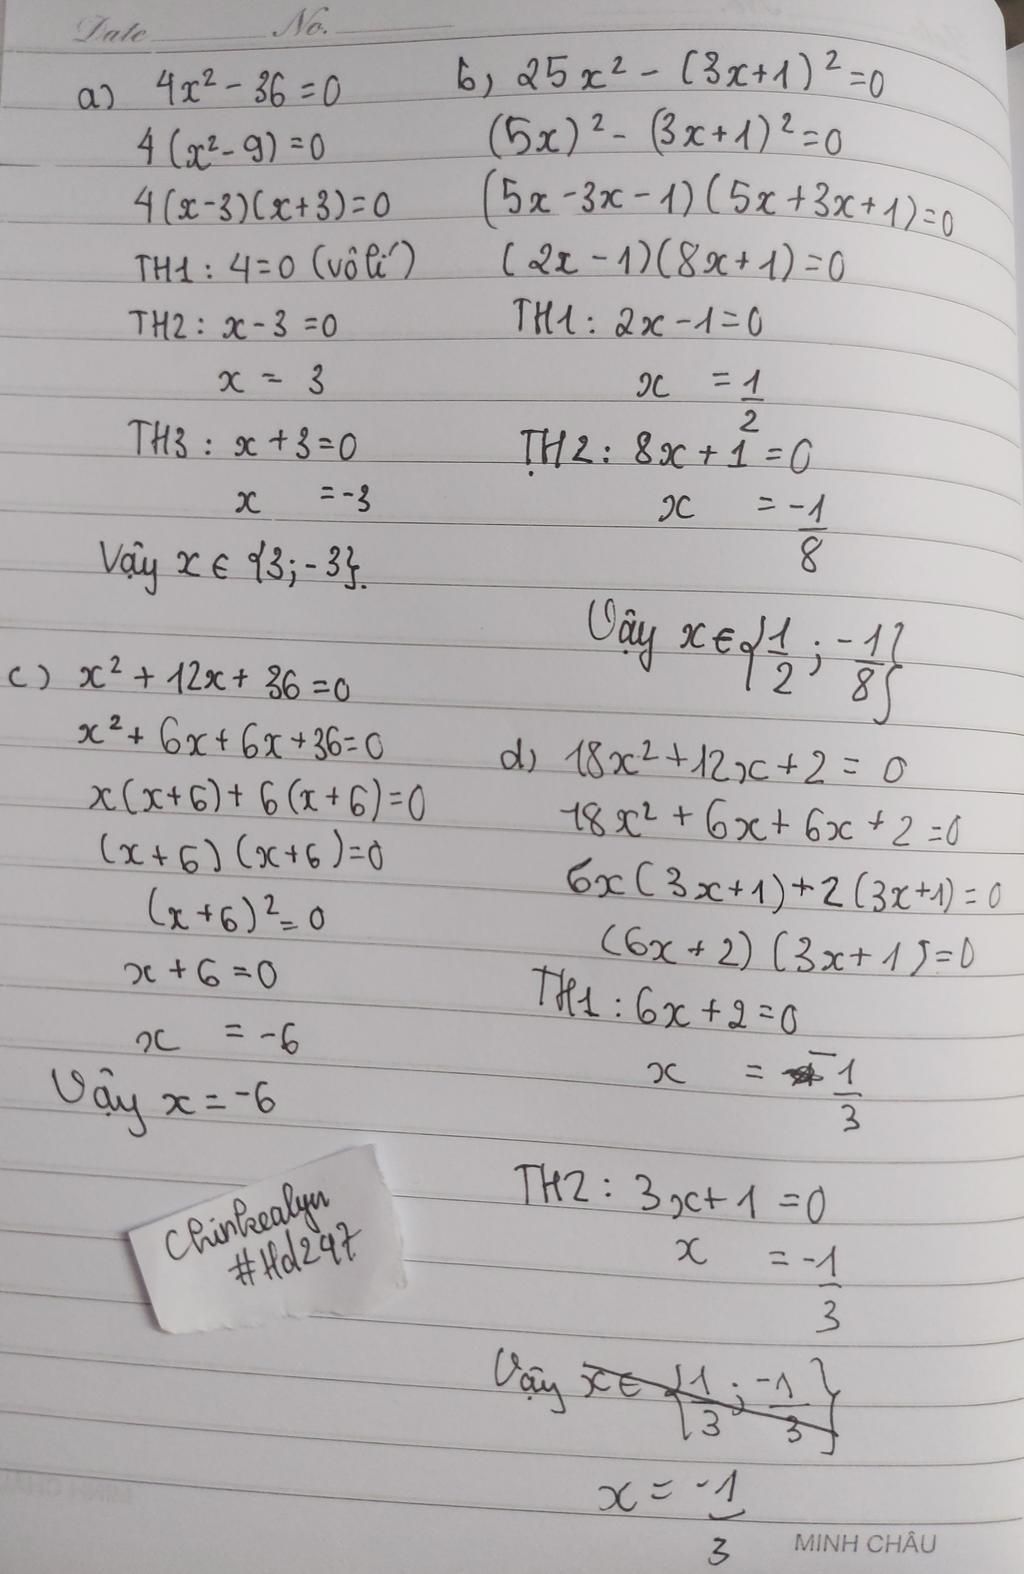 Date No.
a) 4x² - 36 = 0
4(x² - 9) = 0
4(x-3)(x+3) = 0
TH1: 4 = 0 (vôlí)
TH2: x - 3 = 0
x = 3
TH3: x + 3 = 0
x = -3
Vậy x ∈ {3; -3}.
b, 25x² - (3x+1)² = 0
(5x)² - (3x+1)² = 0
(5x - 3x - 1)(5x + 3x + 1) = 0
(2x - 1)(8x + 1) = 0
TH1: 2x - 1 = 0
x = 1/2
TH2: 8x + 1 = 0
x = -1/8
Vậy x ∈ {1/2; -1/8}
c) x² + 12x + 36 = 0
x² + 6x + 6x + 36 = 0
x(x+6) + 6(x+6) = 0
(x+6)(x+6) = 0
(x+6)² = 0
x + 6 = 0
x = -6
Vậy x = -6
d) 18x² + 12x + 2 = 0
18x² + 6x + 6x + 2 = 0
6x(3x+1) + 2(3x+1) = 0
(6x + 2)(3x + 1) = 0
TH1: 6x + 2 = 0
x = -1/3
TH2: 3x + 1 = 0
x = -1/3
Vậy x ∈ {1/3; -1/3}
x = -1/3
Chinkealyn
#Hd247
MINH CHÂU